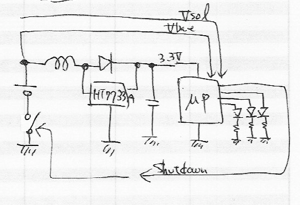 Vsol
3.3V
HT7733A
μP
Shutdown